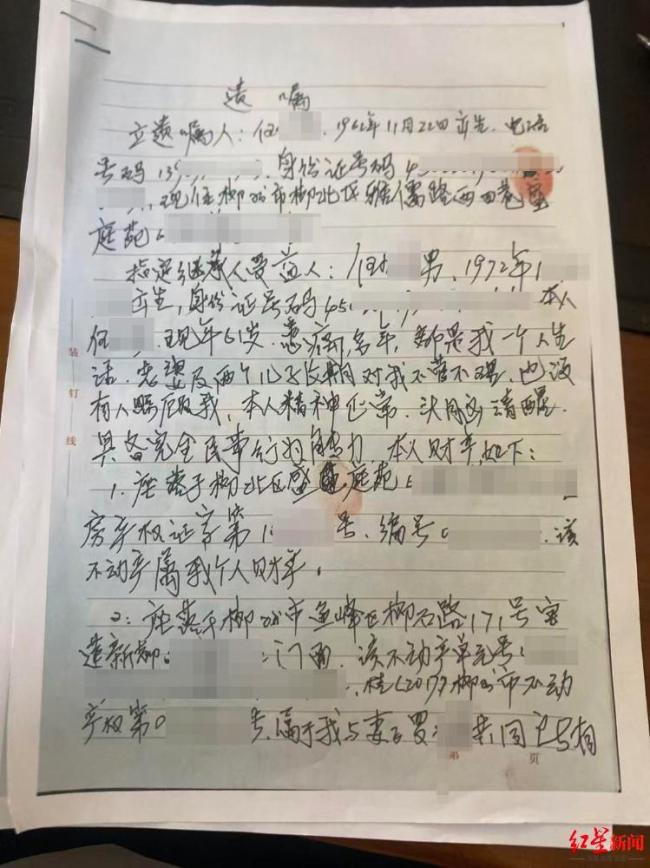 遗嘱
立遗嘱人：任 ，1962年11月22日出生，电话
号码139 ，身份证号码4
，现住柳州市柳北区雅儒路西四巷盛
庭苑
指定继承人受益人：任 男、1972年1
出生，身份证号码45 本人
任 ，现年61岁，患病多年，都是我一个人生
活，老婆及两个儿子长期对我不管不理，也没
有人照顾我，本人精神正常，头脑清醒，
具备完全民事行为能力，本人财产如下：
1、座落于柳北区盛 庭苑
房产权证字第1 号，编号 ，该
不动产属我个人财产。
2：座落于柳州市鱼峰区柳石路171号宝
莲新都 门面，该不动产单元号
，桂（2017）柳州市不动
产权第0 号，属于我与妻子覃 共同
第 页
装 订 线
红星新闻